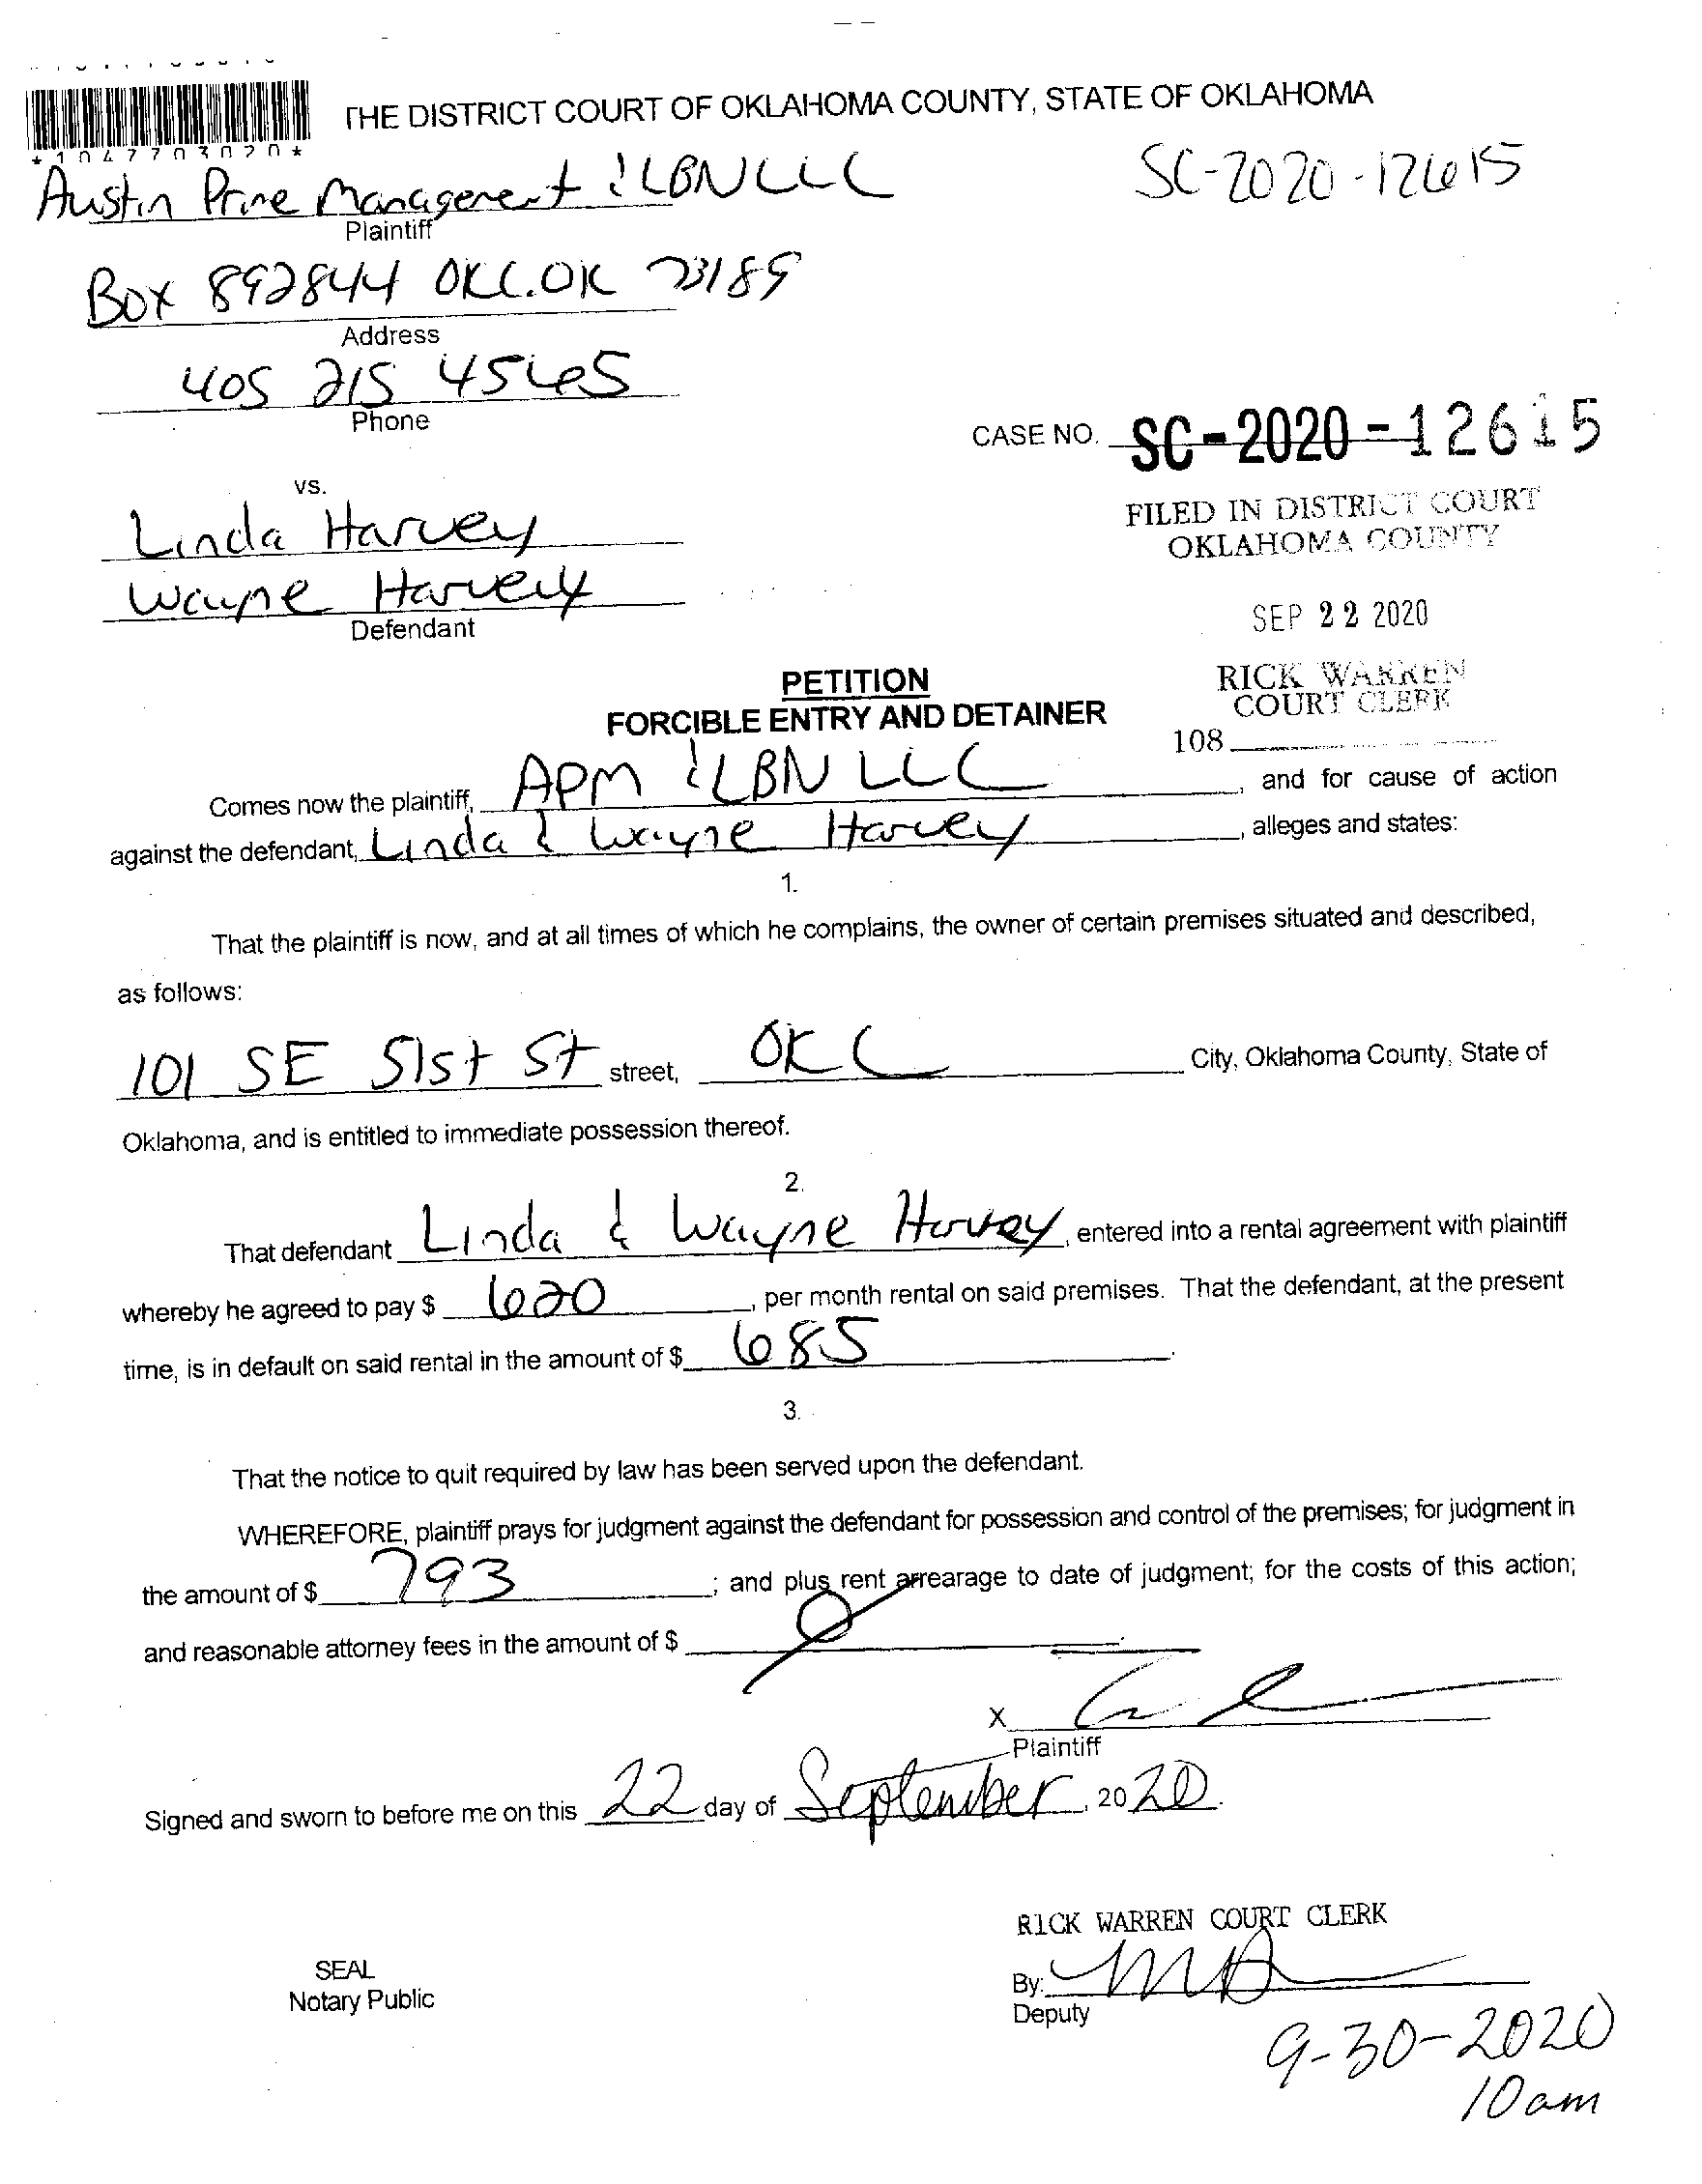 *1047703020*
THE DISTRICT COURT OF OKLAHOMA COUNTY, STATE OF OKLAHOMA
SC-2020-12615
Austin Prine Management & LBN LLC
Plaintiff
Box 892844 OKC.OK 73189
Address
405 215 4565
Phone
CASE NO. SC-2020-12615
vs.
FILED IN DISTRICT COURT
OKLAHOMA COUNTY
Linda Harvey
Wayne Harvey
Defendant
SEP 22 2020
PETITION
FORCIBLE ENTRY AND DETAINER
RICK WARREN
COURT CLERK
108
Comes now the plaintiff, APM & LBN LLC, and for cause of action
against the defendant, Linda & Wayne Harvey, alleges and states:
1.
That the plaintiff is now, and at all times of which he complains, the owner of certain premises situated and described,
as follows:
101 SE 51st St street, OKC City, Oklahoma County, State of
Oklahoma, and is entitled to immediate possession thereof.
2.
That defendant Linda & Wayne Harvey, entered into a rental agreement with plaintiff
whereby he agreed to pay $ 620, per month rental on said premises. That the defendant, at the present
time, is in default on said rental in the amount of $ 685.
3.
That the notice to quit required by law has been served upon the defendant.
WHEREFORE, plaintiff prays for judgment against the defendant for possession and control of the premises; for judgment in
the amount of $ 793; and plus rent arrearage to date of judgment; for the costs of this action;
and reasonable attorney fees in the amount of $ 0.
X
Plaintiff
Signed and sworn to before me on this 22 day of September, 2020.
RICK WARREN COURT CLERK
SEAL
Notary Public
By:
Deputy
9-30-2020
10am